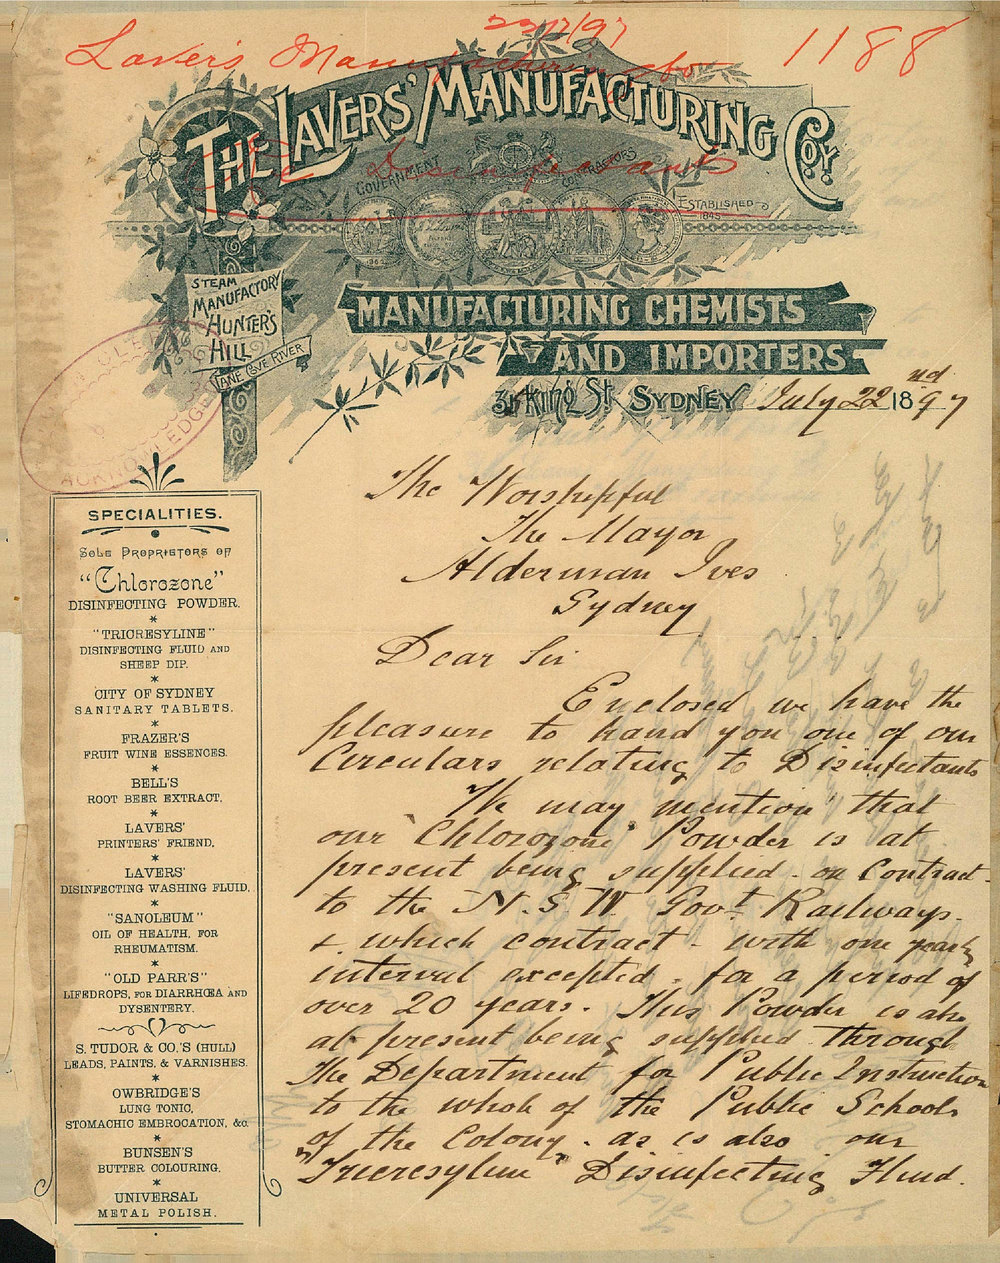 22/7/97
Lavers Manufacturing Co 1188
Re Disinfectants
THE LAVERS' MANUFACTURING COY.
GOVERNMENT CONTRACTORS
ESTABLISHED
1845
STEAM
MANUFACTORY
HUNTER'S
HILL
LANE COVE RIVER
MANUFACTURING CHEMISTS
AND IMPORTERS
King St. SYDNEY July 22nd 1897
ACKNOWLEDGED
The Worshipful
The Mayor
Alderman Ives
Sydney
Dear Sir
Enclosed we have the
pleasure to hand you one of our
Circulars relating to Disinfectants
We may mention that
our "Chlorozone" Powder is at
present being supplied - on Contract -
to the N.S.W. Govt Railways -
& which contract - with one yearly
interval excepted - for a period of
over 20 years. This Powder is also
at present being supplied through
the Department for Public Instruction
to the whole of the Public Schools
of the Colony - as is also our
"Tricresyline" Disinfecting Fluid.
SPECIALITIES.
SOLE PROPRIETORS OF
"Chlorozone"
DISINFECTING POWDER.
*
"TRICRESYLINE"
DISINFECTING FLUID AND
SHEEP DIP.
*
CITY OF SYDNEY
SANITARY TABLETS.
*
FRAZER'S
FRUIT WINE ESSENCES.
*
BELL'S
ROOT BEER EXTRACT.
*
LAVERS'
PRINTERS' FRIEND.
*
LAVERS'
DISINFECTING WASHING FLUID.
*
"SANOLEUM"
OIL OF HEALTH, FOR
RHEUMATISM.
*
"OLD PARR'S"
LIFEDROPS, FOR DIARRHŒA AND
DYSENTERY.
S. TUDOR & CO.'S (HULL)
LEADS, PAINTS, & VARNISHES.
*
OWBRIDGE'S
LUNG TONIC,
STOMACHIC EMBROCATION, &c.
*
BUNSEN'S
BUTTER COLOURING.
*
UNIVERSAL
METAL POLISH.